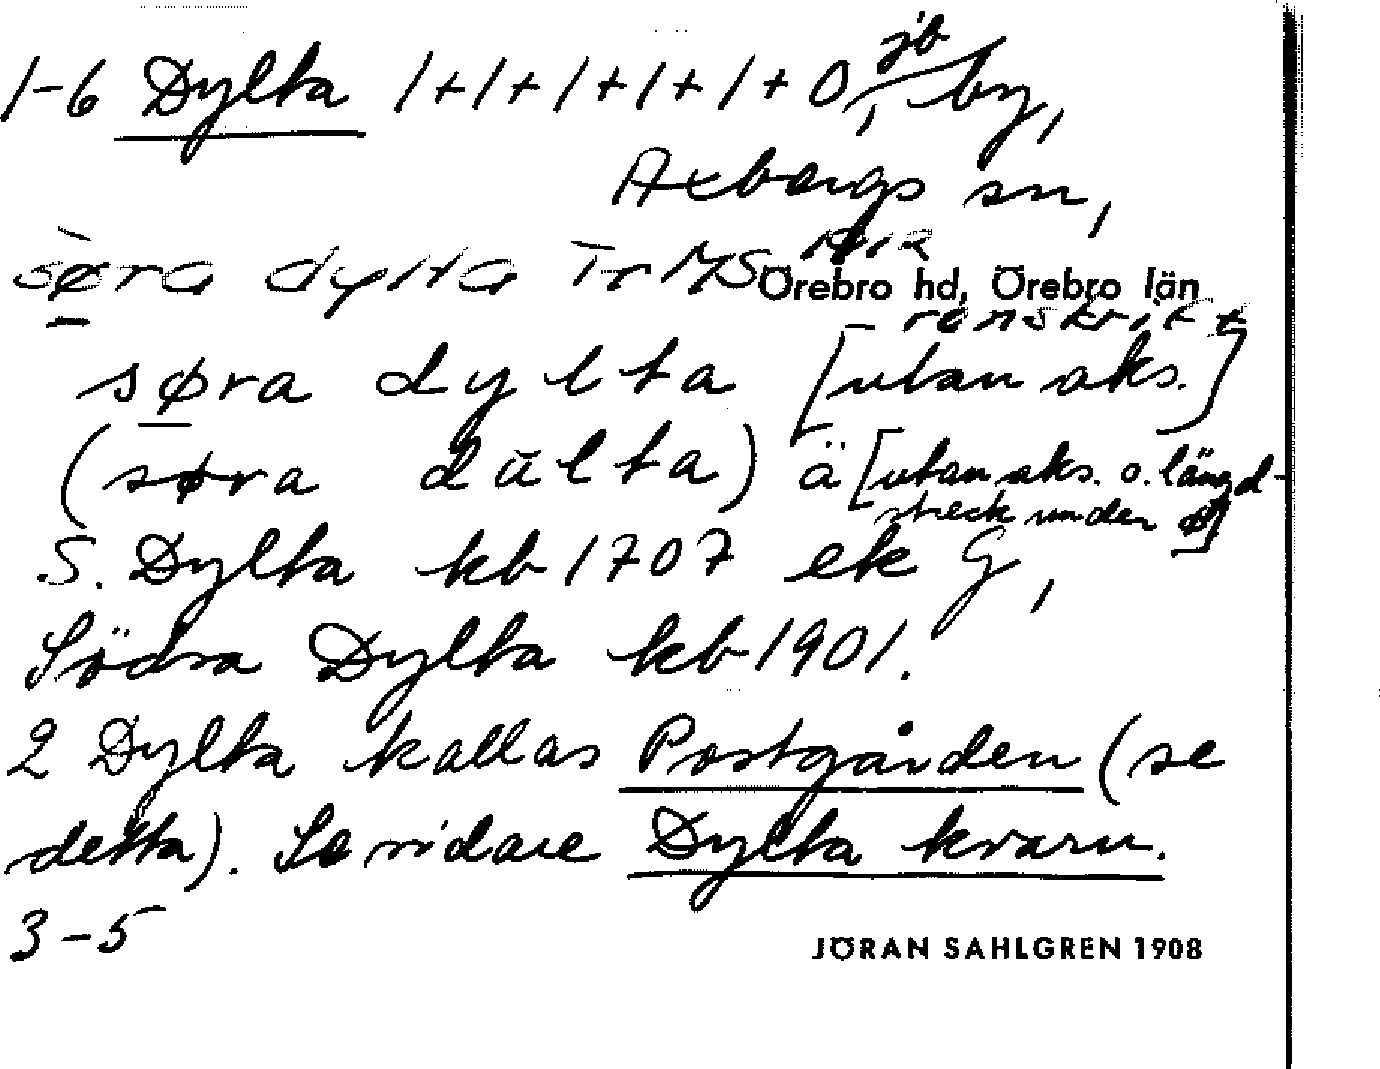 1-6 Dylta 1+1+1+1+1+0, jb by,
Axbergs sn,
sø̀ra dylta Tr MS
Örebro hd, Örebro län
renskrift
søra dylta [utan aks.]
(søra dūlta) ä [utan aks. o. längd-
streck under ø]
S. Dylta kb 1707 ek G,
Södra Dylta kb 1901.
2 Dylta kallas Postgården (se
detta). Se vidare Dylta kvarn.
3-5
JÖRAN SAHLGREN 1908